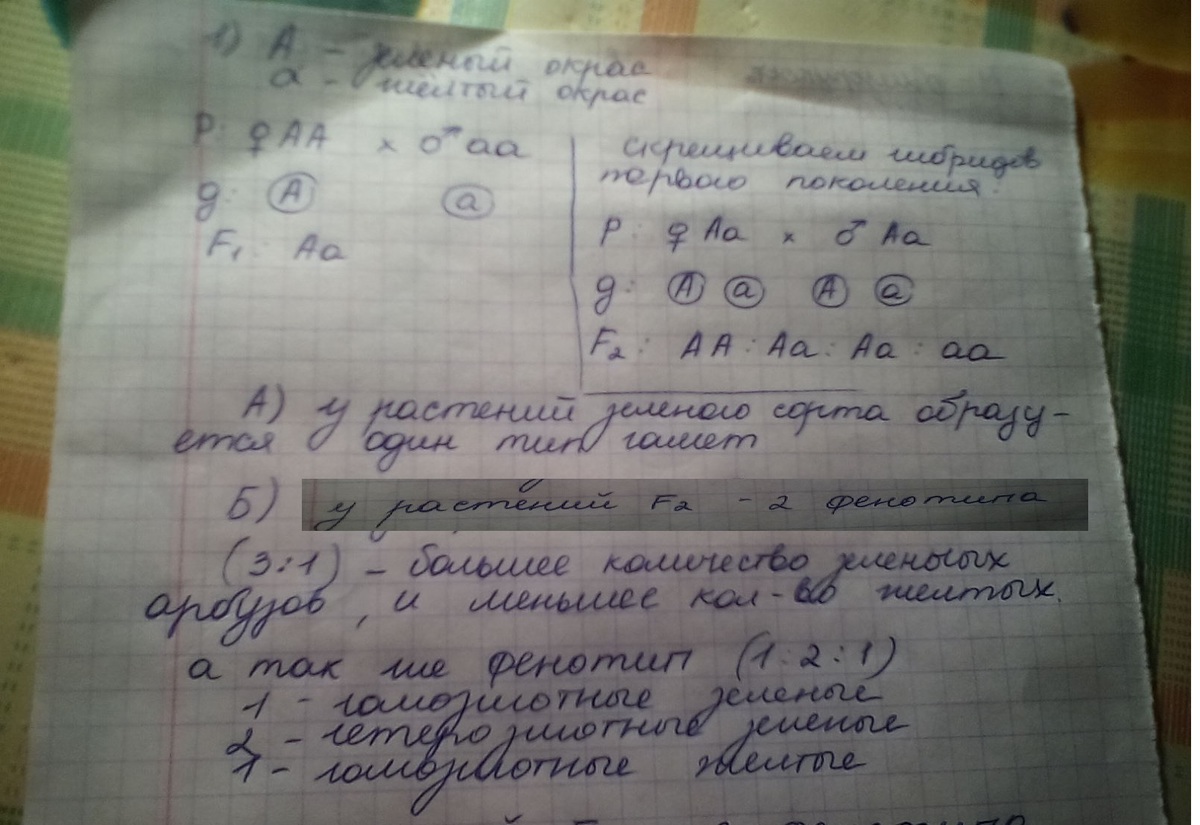 1) А – зеленый окрас
а – жёлтый окрас
P: ♀ AA × ♂ aa
g: A a
F₁: Aa
скрещиваем гибридов
первого поколения:
P: ♀ Aa × ♂ Aa
g: A a A a
F₂: AA : Aa : Aa : aa
А) у растений зеленого сорта образу-
ется один тип гамет
Б) у растений F₂ - 2 фенотипа
(3:1) – большее количество зеленых
арбузов, и меньшее кол-во желтых.
а так же фенотип (1:2:1)
1 – гомозиготные зеленые
2 – гетерозиготные зеленые
1 – гомозиготные желтые